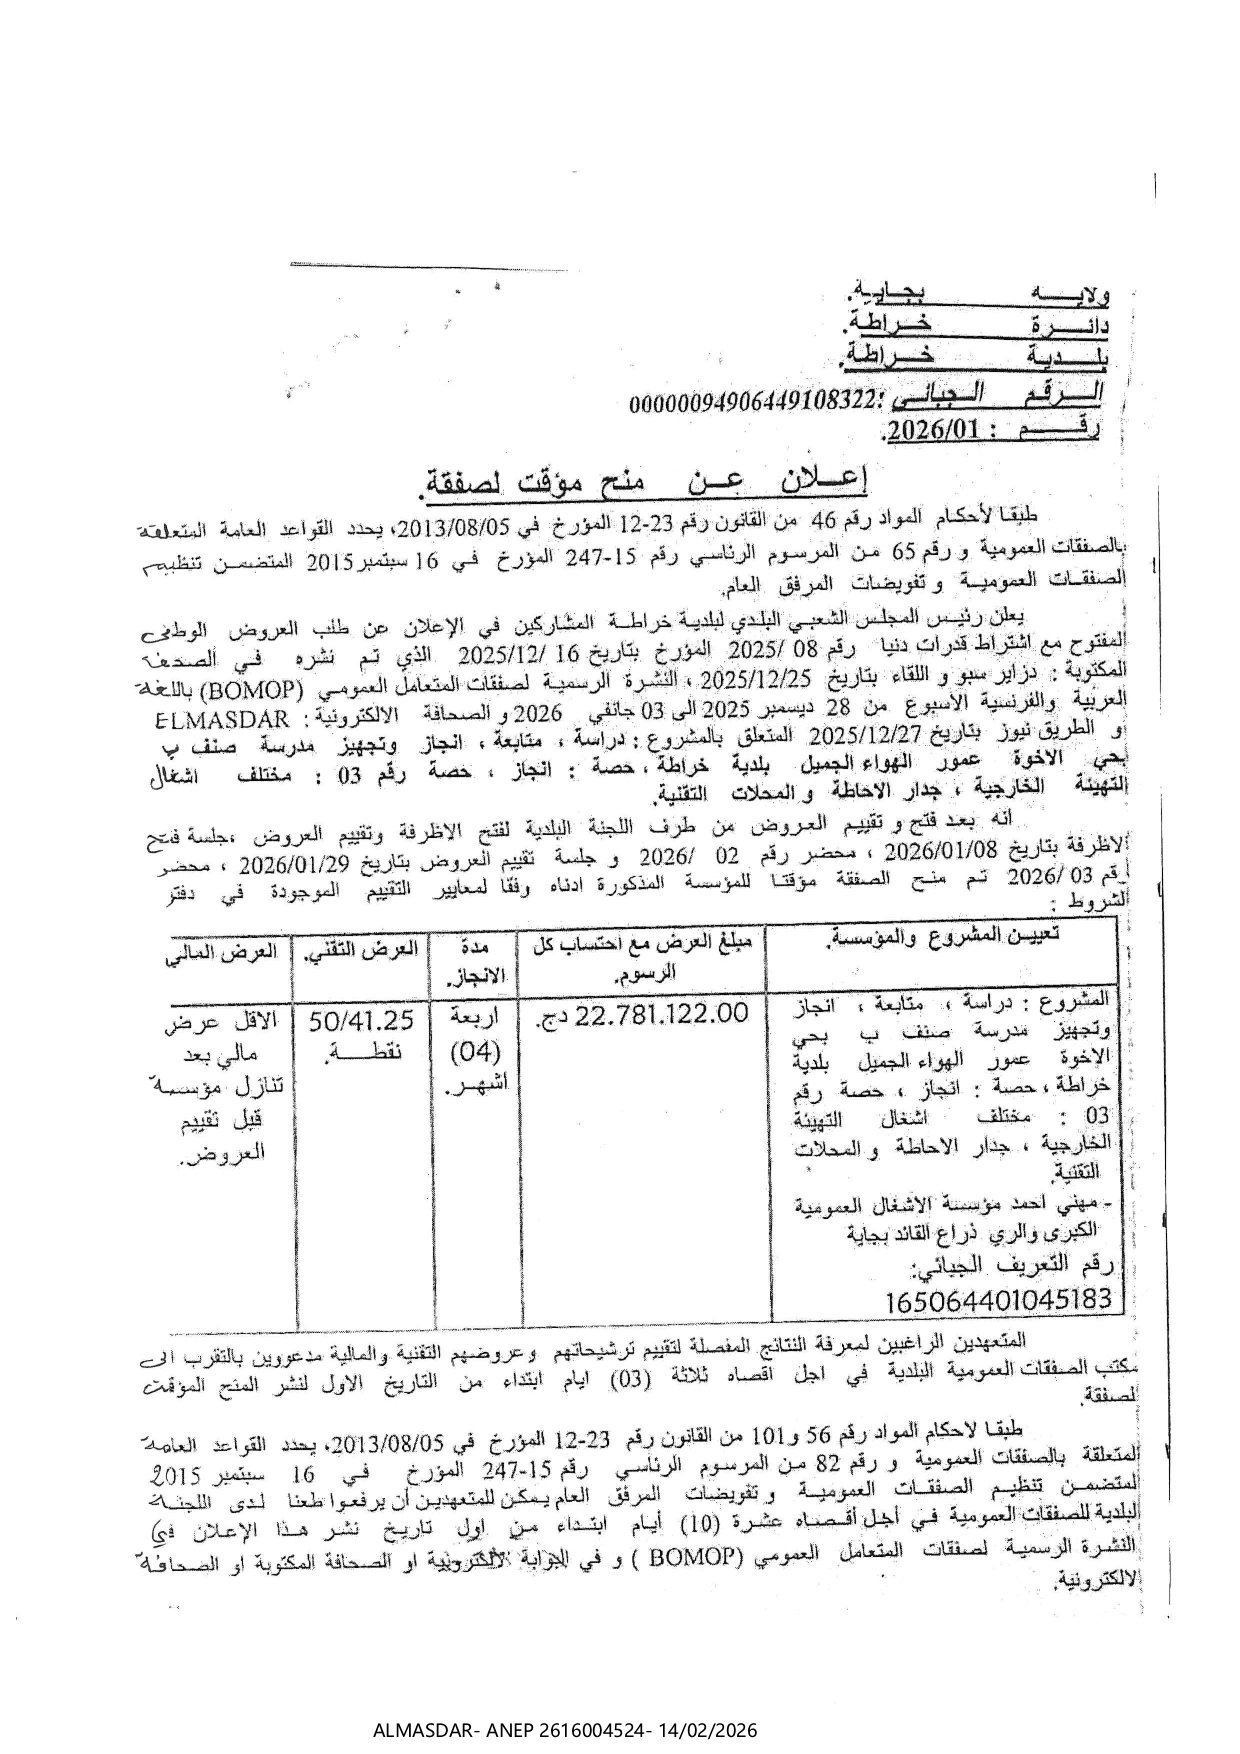 ولايـــة بجـايـة.
دائــــرة خـــراطـة.
بلــديـة خـــراطـة.
الـــرقـم الـجبائـي :00000094906449108322
رقــــم : 2026/01.
إعــلان عــن منح مؤقت لصفقة.
طبقا لأحكام المواد رقم 46 من القانون رقم 23-12 المؤرخ في 2013/08/05، يحدد القواعد العامة المتعلقة
بالصفقات العمومية و رقم 65 من المرسوم الرئاسي رقم 15-247 المؤرخ في 16 سبتمبر 2015 المتضمن تنظيم
الصفقـات العموميـة و تفويضات المرفق العام.
يعلن رئيس المجلس الشعبي البلدي لبلدية خراطة المشاركين في الإعلان عن طلب العروض الوطني
المفتوح مع اشتراط قدرات دنيا رقم 08 /2025 المؤرخ بتاريخ 16 /2025/12 الذي تم نشره في الصحف
المكتوبة : دزاير سبو و اللقاء بتاريخ 2025/12/25 ، النشرة الرسمية لصفقات المتعامل العمومي (BOMOP) باللغة
العربية والفرنسية الأسبوع من 28 ديسمبر 2025 الى 03 جانفي 2026 و الصحافة الالكترونية : ELMASDAR
و الطريق نيوز بتاريخ 2025/12/27 المتعلق بالمشروع : دراسة ، متابعة ، انجاز وتجهيز مدرسة صنف ب
بحي الاخوة عمور الهواء الجميل بلدية خراطة ، حصة : انجاز ، حصة رقم 03 : مختلف اشغال
التهيئة الخارجية ، جدار الاحاطة و المحلات التقنية.
انه بعد فتح و تقييم العروض من طرف اللجنة البلدية لفتح الاظرفة وتقييم العروض ،جلسة فتح
الاظرفة بتاريخ 2026/01/08 ، محضر رقم 02 /2026 و جلسة تقييم العروض بتاريخ 2026/01/29 ، محضر
رقم 03 /2026 تم منح الصفقة مؤقتا للمؤسسة المذكورة ادناه وفقا لمعايير التقييم الموجودة في دفتر
الشروط :
تعيين المشروع والمؤسسة. مبلغ العرض مع احتساب كل الرسوم. مدة الانجاز. العرض التقني. العرض المالي
المشروع : دراسة ، متابعة ، انجاز
وتجهيز مدرسة صنف ب بحي
الاخوة عمور الهواء الجميل بلدية
خراطة ، حصة : انجاز ، حصة رقم
03 : مختلف اشغال التهيئة
الخارجية ، جدار الاحاطة و المحلات
التقنية.
- مهني احمد مؤسسة الاشغال العمومية
الكبرى والري ذراع القائد بجاية
رقم التعريف الجبائي:
165064401045183
22.781.122.00 دج.
اربعة
(04)
اشهـر.
50/41.25
نقطـــة.
الاقل عرض
مالي بعد
تنازل مؤسسة
قبل تقييم
العروض.
المتعهدين الراغبين لمعرفة النتائج المفصلة لتقييم ترشيحاتهم وعروضهم التقنية والمالية مدعووين بالتقرب الى
مكتب الصفقات العمومية البلدية في اجل اقصاه ثلاثة (03) ايام ابتداء من التاريخ الاول لنشر المنح المؤقت
لصفقة.
طبقا لاحكام المواد رقم 56 و101 من القانون رقم 23-12 المؤرخ في 2013/08/05، يحدد القواعد العامة
المتعلقة بالصفقات العمومية و رقم 82 من المرسوم الرئاسي رقم 15-247 المؤرخ في 16 سبتمبر 2015
المتضمن تنظيم الصفقـات العموميـة و تفويضات المرفق العام يمكن للمتعهدين أن يرفعوا طعنا لدى اللجنـة
البلدية للصفقات العمومية في أجل أقصاه عشرة (10) أيام ابتداء من اول تاريخ نشر هذا الإعلان في
النشرة الرسمية لصفقات المتعامل العمومي (BOMOP ) و في البوابة الالكترونية او الصحافة المكتوبة او الصحافة
الالكترونية.
ALMASDAR- ANEP 2616004524- 14/02/2026